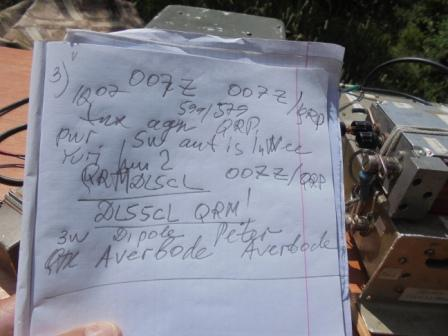 3)
1207 OO7Z OO7Z/QRP
599/579
tnx agn QRP
pwr 5w ant is
QRM DL5CL OO7Z/QRP
DL5SCL QRM!
3w Dipole Peter
QTH Averbode Averbode